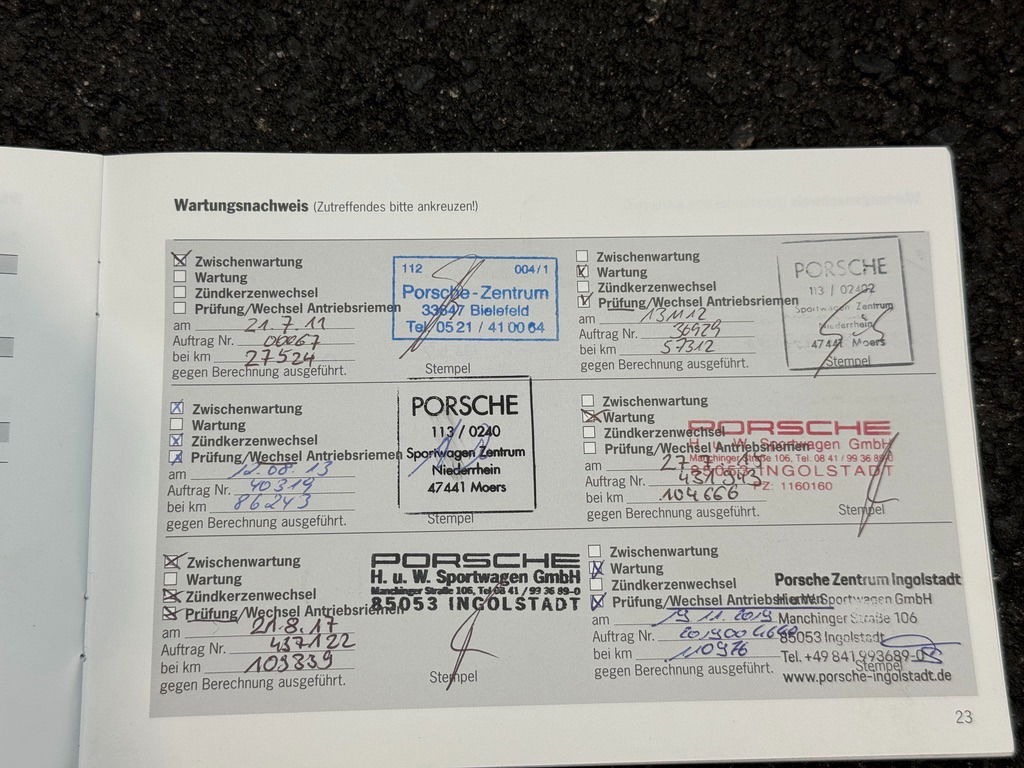 Wartungsnachweis (Zutreffendes bitte ankreuzen!)
Zwischenwartung
Wartung
Zündkerzenwechsel
Prüfung/Wechsel Antriebsriemen
am 21.7.11
Auftrag Nr. 06067
bei km 27524
gegen Berechnung ausgeführt.
112 004/1
Porsche-Zentrum
33647 Bielefeld
Tel. 05 21 / 41 00 64
Stempel
Zwischenwartung
Wartung
Zündkerzenwechsel
Prüfung/Wechsel Antriebsriemen
am 13.11.12
Auftrag Nr. 36929
bei km 57312
gegen Berechnung ausgeführt.
PORSCHE
113 / 0240
Sportwagen Zentrum
Niederrhein
47441 Moers
Stempel
Zwischenwartung
Wartung
Zündkerzenwechsel
Prüfung/Wechsel Antriebsriemen
am 12.08.13
Auftrag Nr. 40319
bei km 86243
gegen Berechnung ausgeführt.
PORSCHE
113 / 0240
Sportwagen Zentrum
Niederrhein
47441 Moers
Stempel
Zwischenwartung
Wartung
Zündkerzenwechsel
Prüfung/Wechsel Antriebsriemen
am
Auftrag Nr.
bei km 104666
gegen Berechnung ausgeführt.
PORSCHE
H. u. W. Sportwagen GmbH
Manchinger Straße 106, Tel. 08 41 / 99 36 89-0
85053 INGOLSTADT
PZ: 1160160
Stempel
Zwischenwartung
Wartung
Zündkerzenwechsel
Prüfung/Wechsel Antriebsriemen
am 21.8.17
Auftrag Nr. 437122
bei km 109839
gegen Berechnung ausgeführt.
PORSCHE
H. u. W. Sportwagen GmbH
Manchinger Straße 106, Tel. 08 41 / 99 36 89-0
85053 INGOLSTADT
Stempel
Zwischenwartung
Wartung
Zündkerzenwechsel
Prüfung/Wechsel Antriebsriemen
am 19.11.2019
Auftrag Nr.
bei km 110976
gegen Berechnung ausgeführt.
Porsche Zentrum Ingolstadt
H. u. W. Sportwagen GmbH
Manchinger Straße 106
85053 Ingolstadt
Tel. +49 841 993689-0
www.porsche-ingolstadt.de
Stempel
23